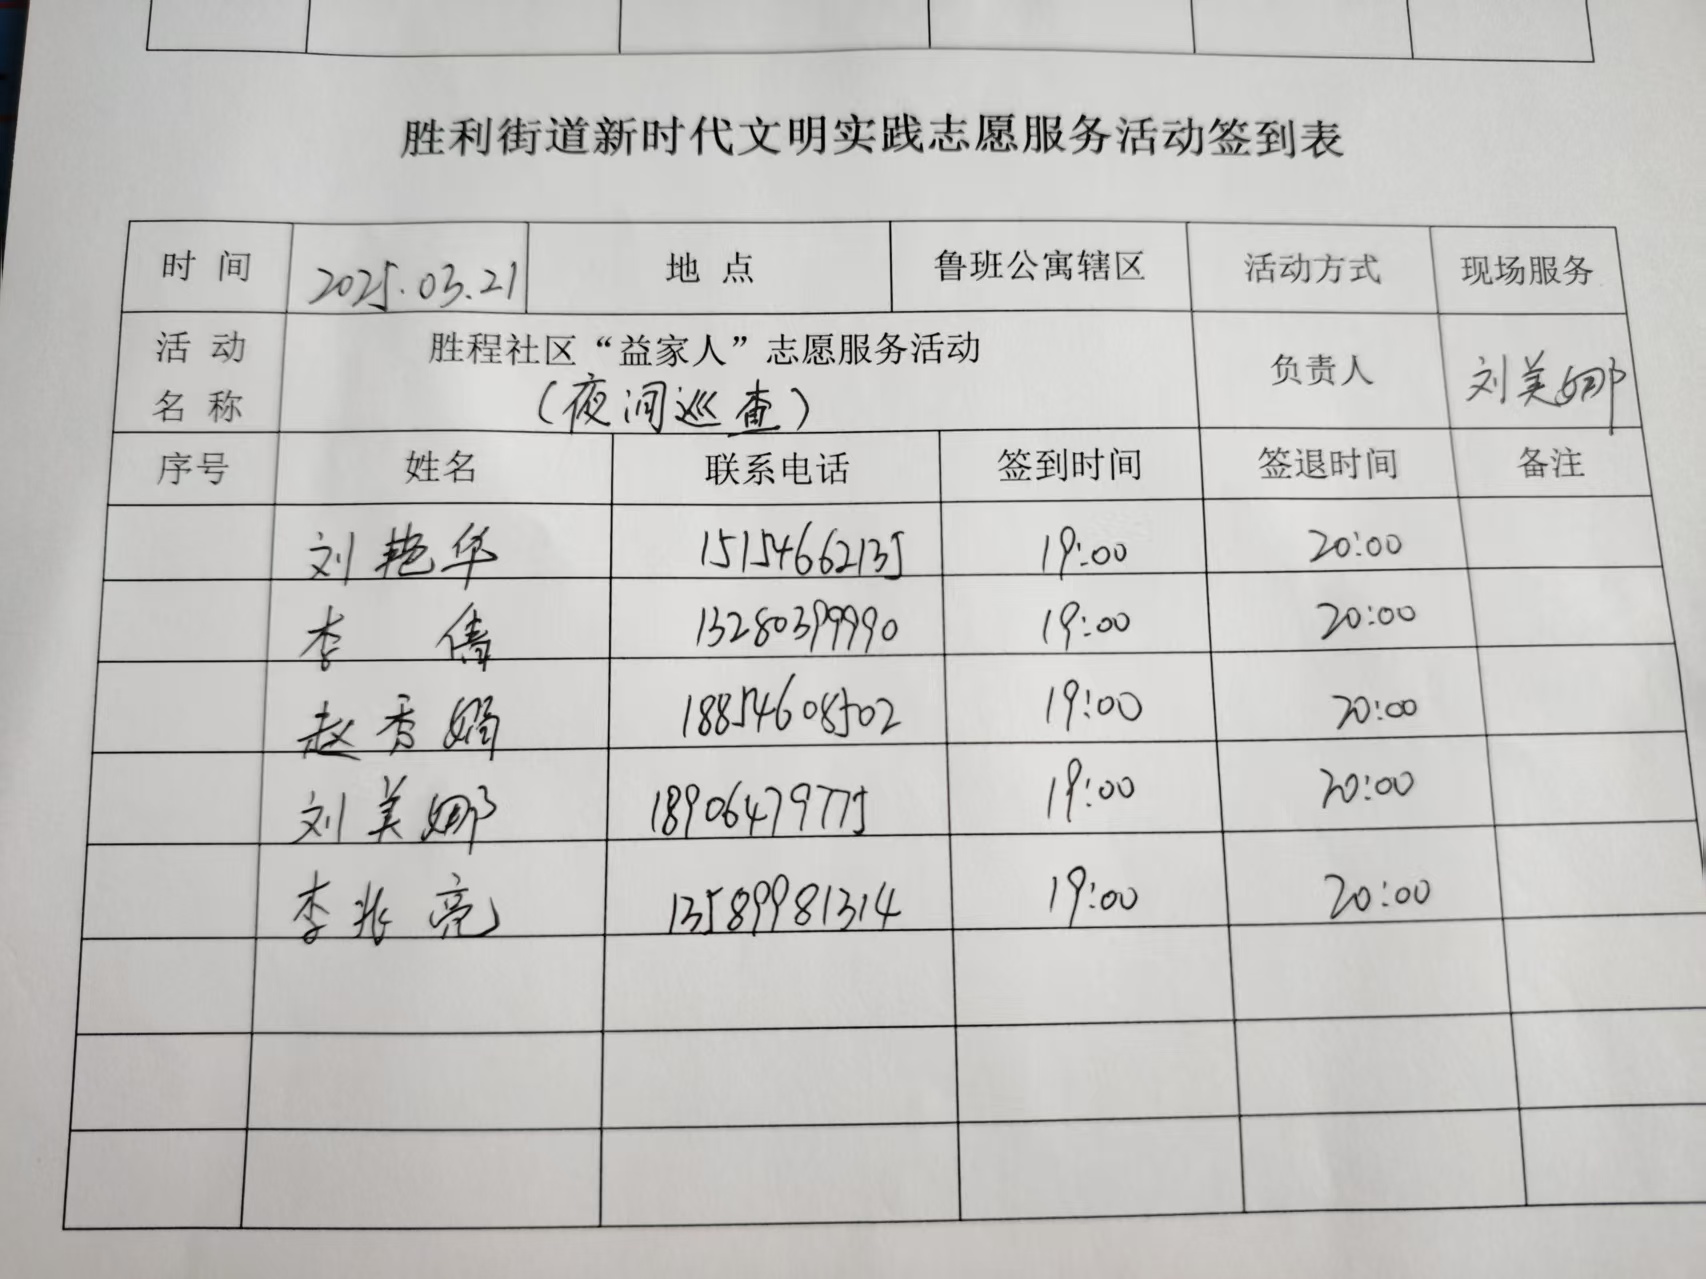 胜利街道新时代文明实践志愿服务活动签到表
时 间 2025.03.21 地 点 鲁班公寓辖区 活动方式 现场服务
活 动 胜程社区“益家人”志愿服务活动 负责人 刘美娜
名 称 (夜间巡查)
序号 姓名 联系电话 签到时间 签退时间 备注
刘艳华 15154662135 19:00 20:00
李倩 13280399990 19:00 20:00
赵香娟 18854608502 19:00 20:00
刘美娜 18906479775 19:00 20:00
李兆亮 13589981314 19:00 20:00